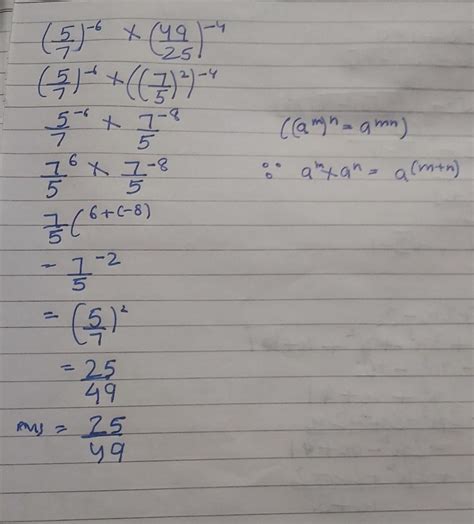 (5/7)^-6 × (49/25)^-4
(5/7)^-6 × ((7/5)^2)^-4
5/7^-6 × 7/5^-8 ((a^m)^n = a^mn)
7/5^6 × 7/5^-8 ∵ a^m × a^n = a^(m+n)
7/5(^6+(-8)
= 7/5^-2
= (5/7)^2
= 25/49
Ans = 25/49